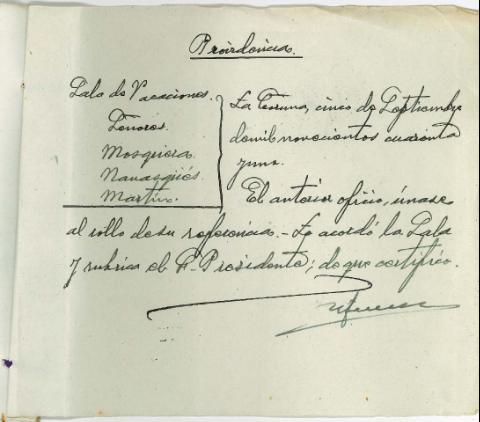 Providencia.
Sala de Vacaciones.
Señores.
Mosquera.
Navasqués.
Martín.
La Coruna, cinco de Septiembre
de mil novecientos cuarenta
y uno.
El anterior oficio, únase
al rollo de su referencia.- Lo acordó la Sala
y rubrica el Sr. Presidente; de que certifico.